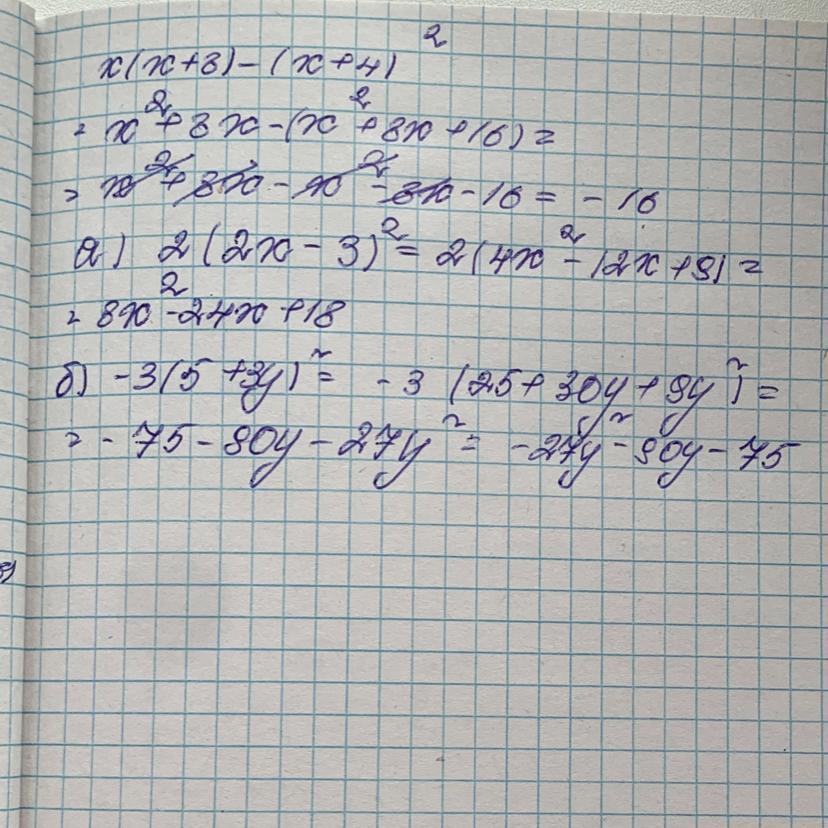 x(x+8)-(x+4)²
= x²+8x-(x²+8x+16)=
= x²+8x-x²-8x-16= -16
а) 2(2x-3)²= 2(4x²-12x+9)=
= 8x²-24x+18
б) -3(5+3y)²= -3(25+30y+9y²)=
= -75-90y-27y²= -27y²-90y-75